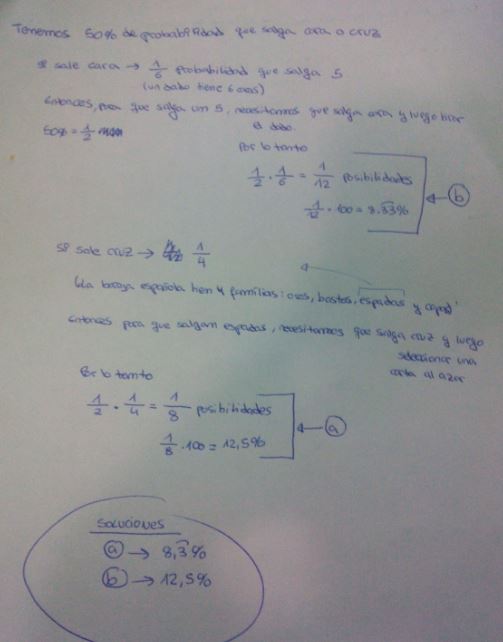 Tenemos 50% de probabilidad que salga cara o cruz
Si sale cara → 1/6 probabilidad que salga 5
(un dado tiene 6 caras)
Entonces, para que salga un 5, necesitamos que salga cara y luego tirar
el dado.
50% = 1/2
Por lo tanto
1/2 · 1/6 = 1/12 posibilidades
1/12 · 100 = 8.33%
b
Si sale cruz → 1/4
(La baraja española tien 4 familias: oros, bastos, espadas y copas)
Entonces para que salgan espadas, necesitamos que salga cruz y luego
seleccionar una
carta al azar
Por lo tanto
1/2 · 1/4 = 1/8 posibilidades
1/8 · 100 = 12,5%
a
SOLUCIONES
a → 8,3%
b → 12,5%